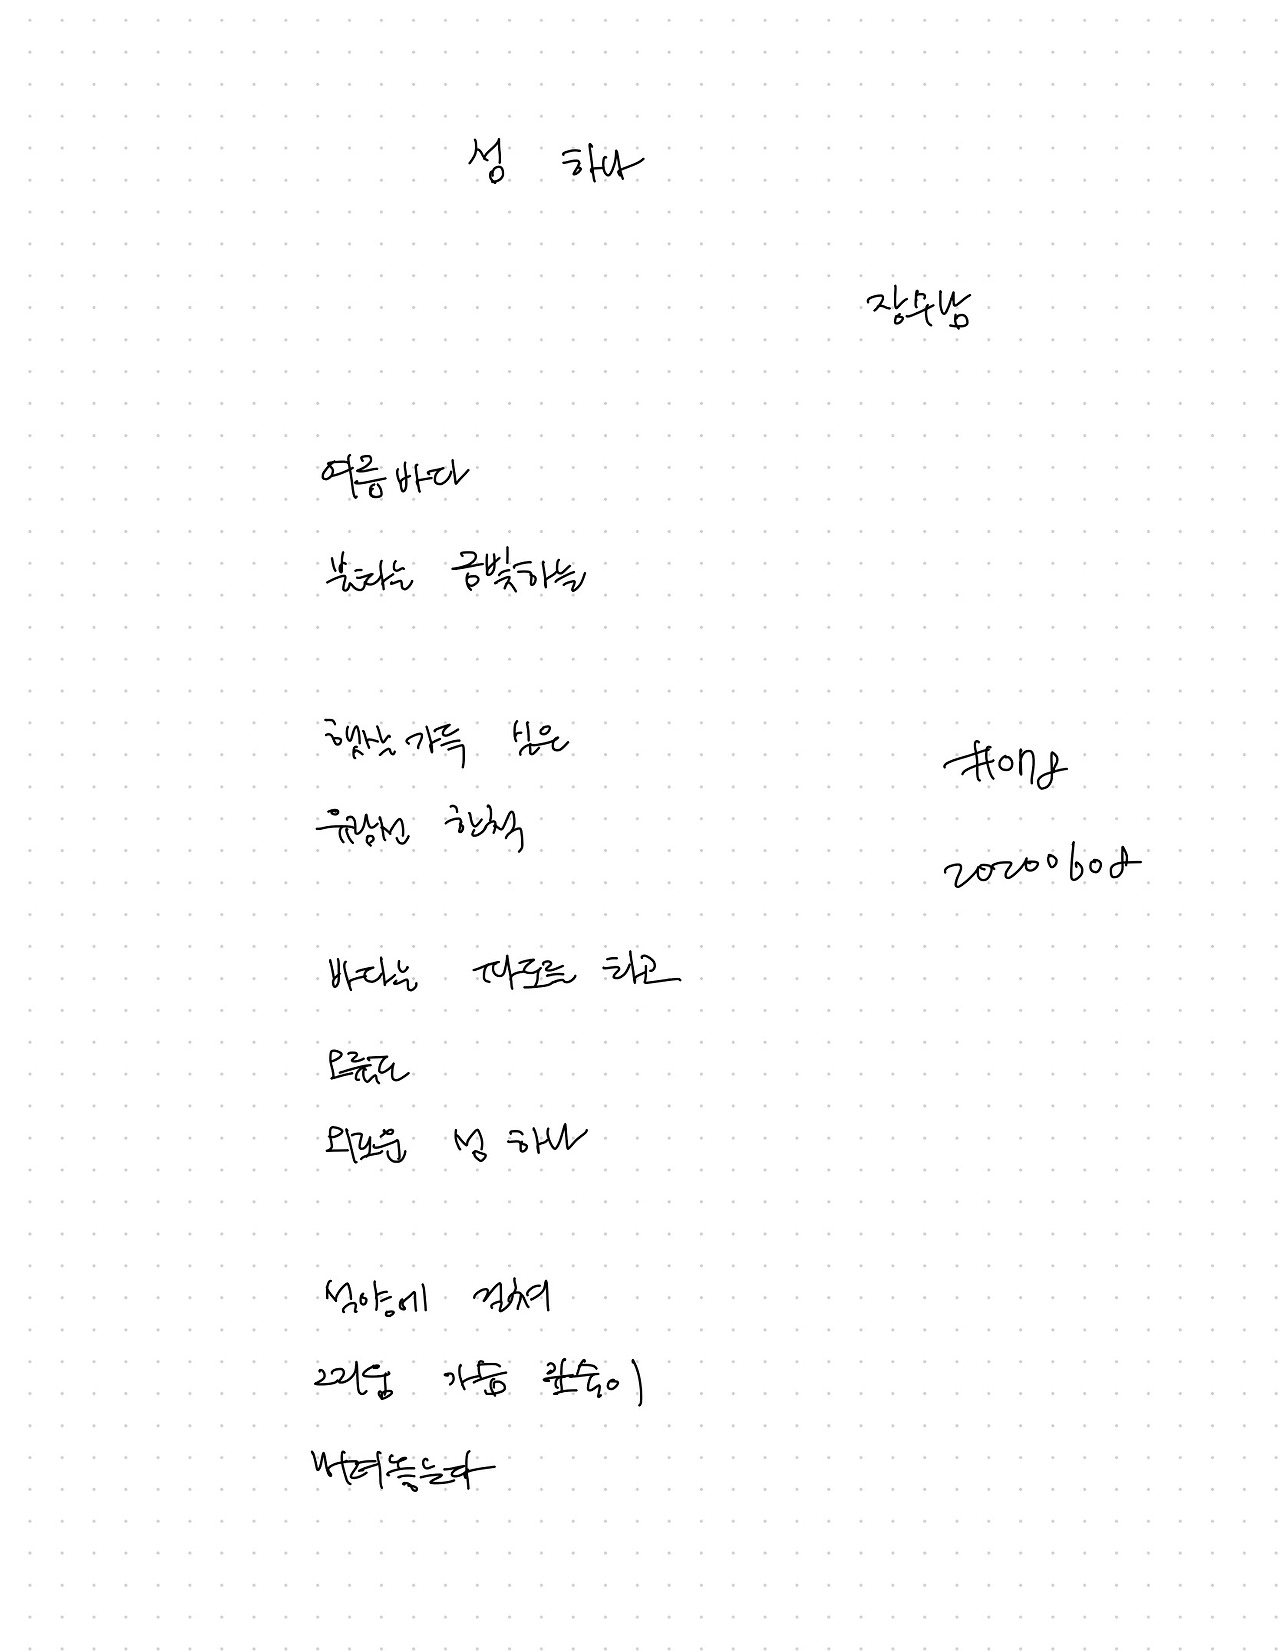 섬 하나
장수남
여름바다
불타는 금빛하늘
햇살가득 실은
유람선 한척
#ong
20200608
바다는 파도를 타고
오른다
외로운 섬 하나
석양에 걸쳐
그리움 가슴 깊숙이
내려놓는다